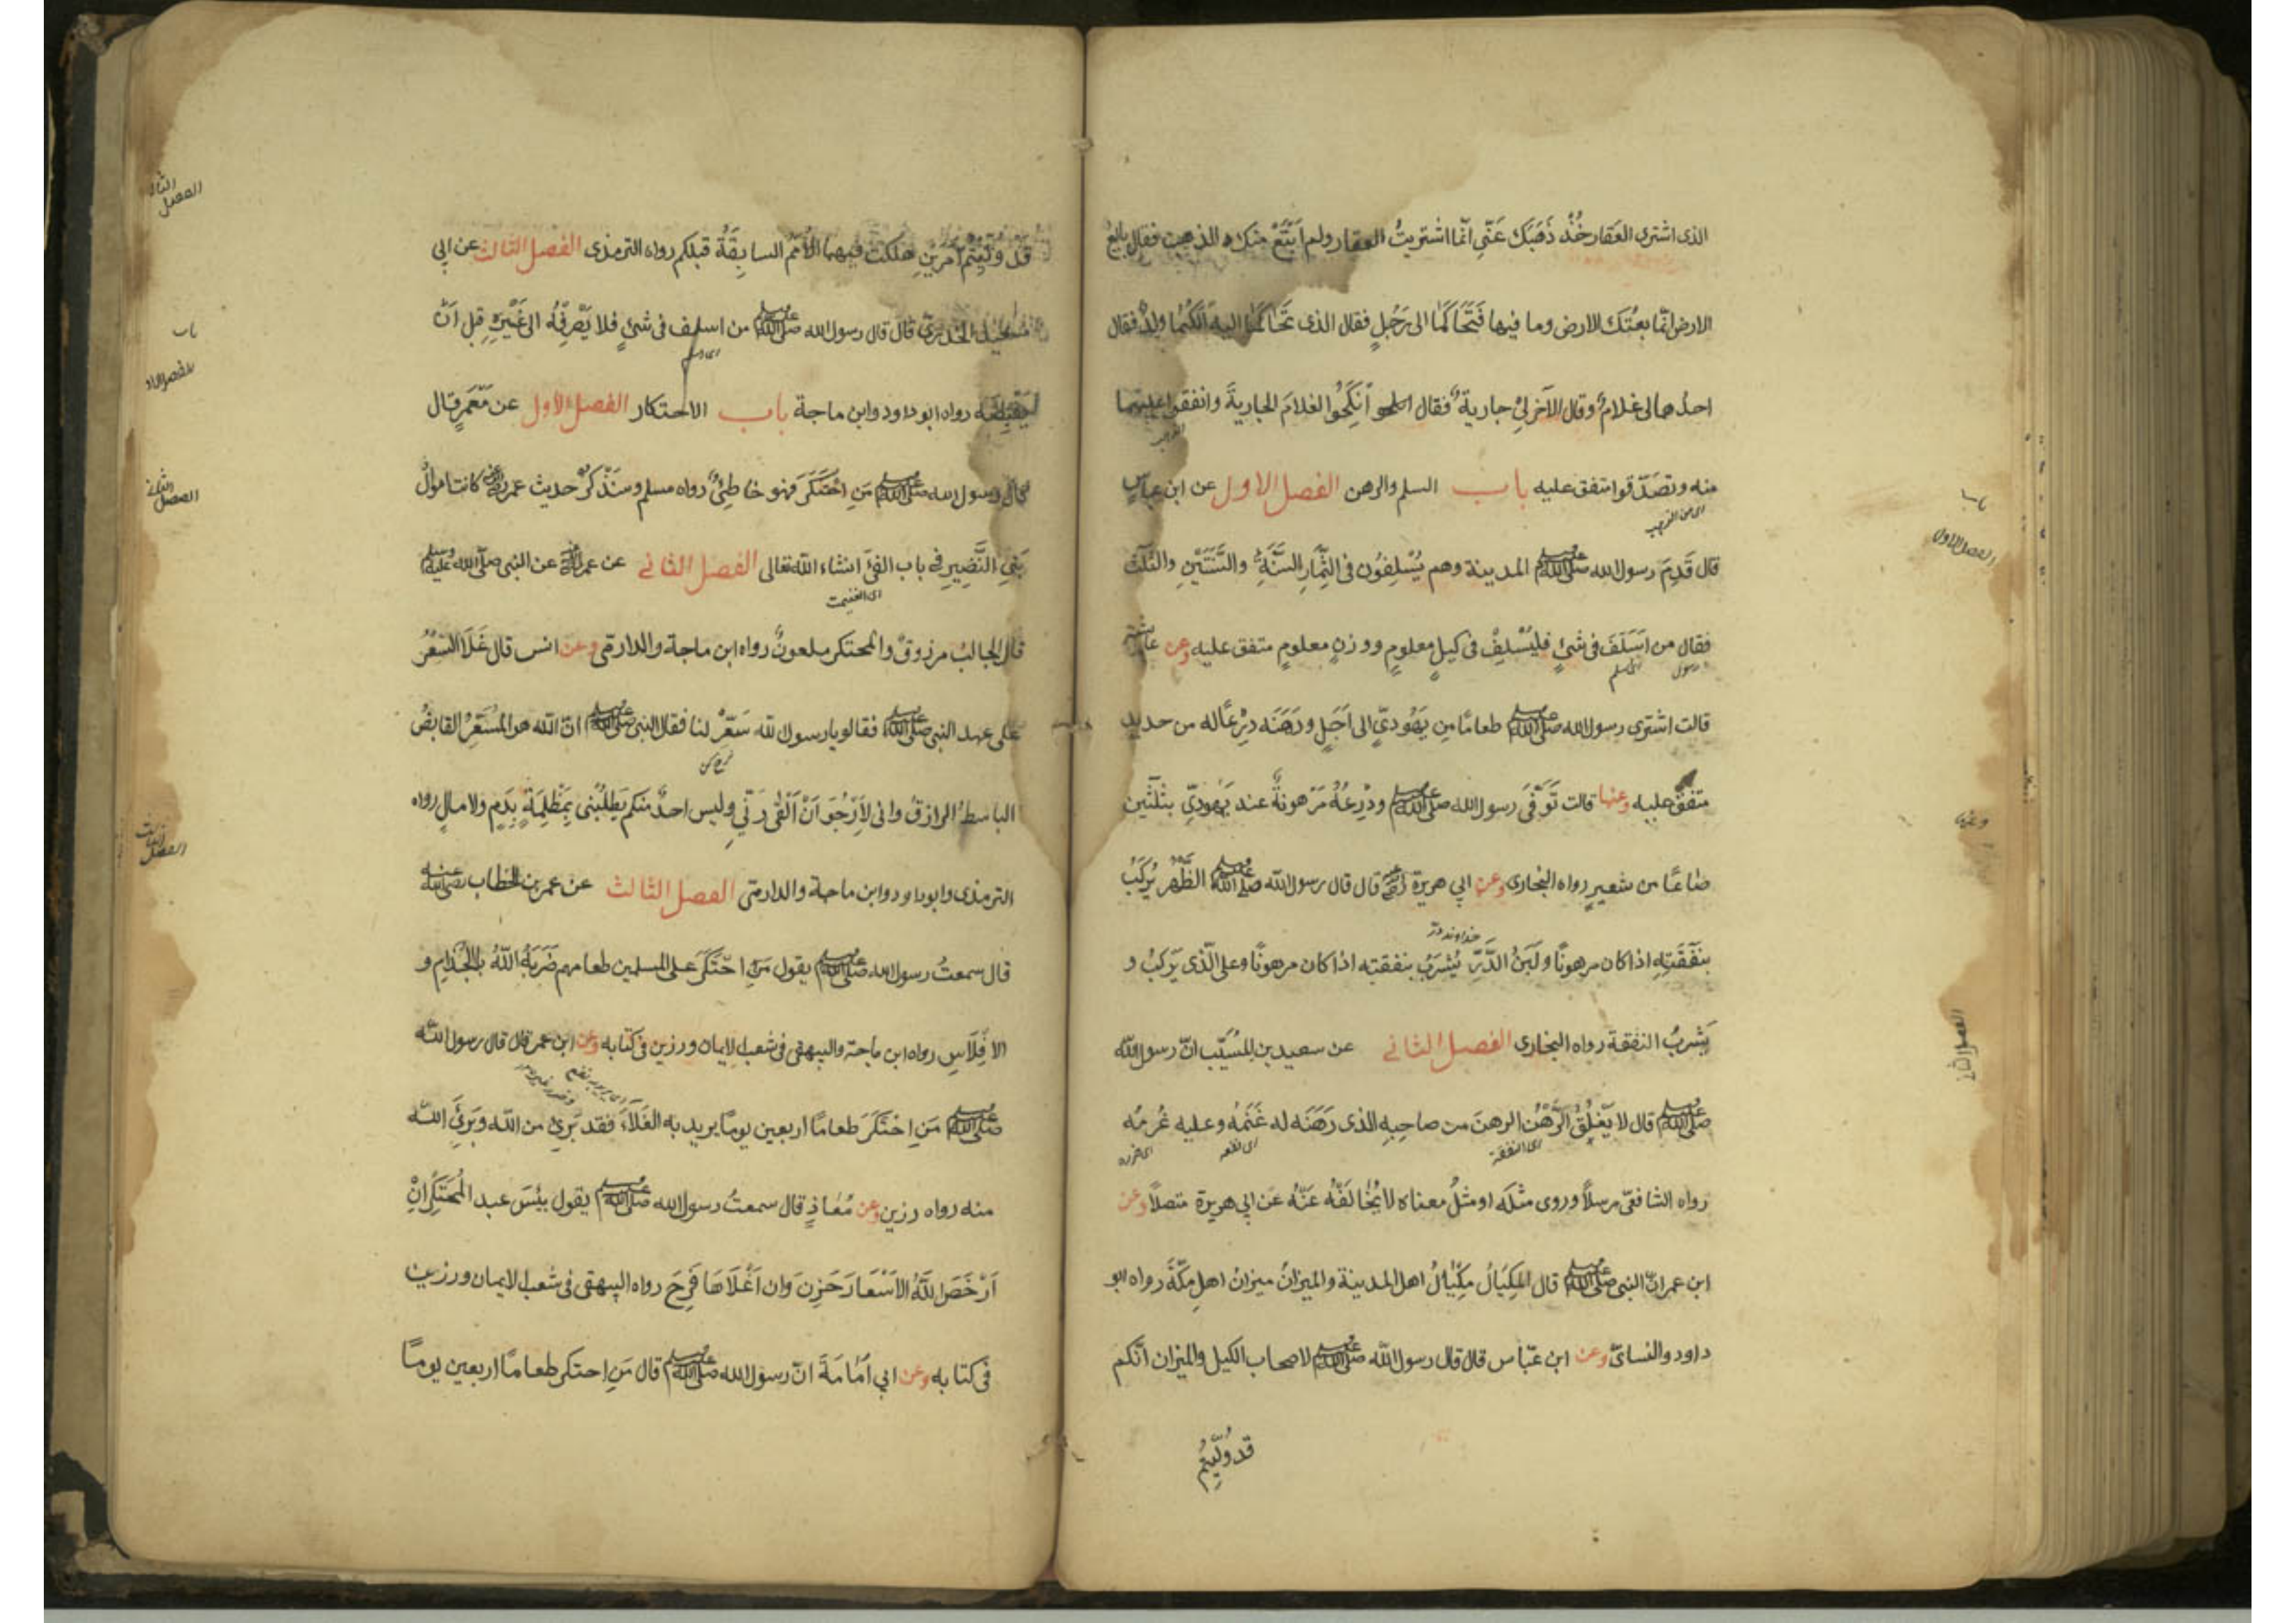 الذى اشترى العَقار خُذْ ذَهَبَك عَنّى انّما اشتريتُ العقار ولم اَبْتَعْ منك الذهب فقال بائعُ
الارض انّما بعتُك الارض وما فيها فَتَحَاكَمَا الى رَجُلٍ فقال الذى تحَاكَمَا اليه اَلَكُما ولدٌ فقال
احدُهما لى غلامٌ وقال الآخر لى جاريةٌ فقال اَنْكِحُوا الغلامَ الجاريةَ وانفقوا عليهما
منه وتصَدّقوا متفق عليه باب السلم والرهن الفصل الاول عن ابن عبّاسٍ
اى من الذهب
قال قَدِمَ رسول الله صلى الله عليه وسلم المدينة وهم يُسْلِفُون فى الثِّمارِ السَّنَةَ والسَّنَتَيْنِ والثَّلٰثَ
فقال من اَسْلَفَ فى شئٍ فليُسْلِفْ فى كيلٍ معلومٍ ووزنٍ معلومٍ متفق عليه وعن عائشة
قالت اشترى رسول الله صلى الله عليه وسلم طعامًا مِن يَهُودىٍّ الى اَجَلٍ ورَهَنَه دِرْعًا له من حديد
متفق عليه وعنها قالت تُوَفّىَ رسول الله صلى الله عليه وسلم ودِرْعُهُ مَرْهونةٌ عند يَهُودىٍّ بثلٰثين
صَاعًا من شعيرٍ رواه البخارى وعن ابى هريرة قال قال رسول الله صلى الله عليه وسلم الظَّهْرُ يُركَبُ
بنَفَقَتِهِ اذا كان مرهونًا ولَبَنُ الدَّرِّ يُشْرَبُ بنفقته اذا كان مرهونًا وعلى الّذى يَركَبُ و
يَشربُ النفقة رواه البخارى الفصل الثانى عن سعيد بن المسيّب انّ رسول الله
صلى الله عليه وسلم قال لا يَغْلَقُ الرَّهْنُ الرهنَ من صاحِبِهِ الذى رَهَنَه له غُنْمُهُ وعليه غُرمُه
رواه الشافعىّ مرسلاً وروى مثلَه او مثلُ معناه لا يُخالفُه عَنْهُ عن ابى هريرة متصلاً وعن
ابن عمر انّ النبى صلى الله عليه وسلم قال المِكيَالُ مِكْيالُ اهل المدينة والميزانُ ميزانُ اهلِ مكّةَ رواه ابو
داود والنسائىّ وعن ابن عبّاس قال قال رسول الله صلى الله عليه وسلم لاصحاب الكيل والميزان انّكم
قد وُلّيتُم
باب
الفصل الاول
الفصل الثانى
قد وُلّيتُم اَمْرَيْنِ هَلَكَتْ فيهما الاُمَمُ السابِقَةُ قبلكم رواه الترمذى الفصل الثالث عن ابى
سعيد الخدرىّ قال قال رسول الله صلى الله عليه وسلم من اسلف فى شئٍ فلا يَصْرِفْهُ الى غَيْرِه قبل اَنْ
يَقْبِضَه رواه ابو داود وابن ماجة باب الاحتكار الفصل الاول عن مَعْمَرٍ قال
قال رسول الله صلى الله عليه وسلم مَنِ احْتَكَرَ فهو خاطِئٌ رواه مسلم وسَنَذْكرُ حديث عمر رضى الله عنه كانت اموالُ
بَنِى النَّضِيرِ فى باب الفئ انشاء الله تعالى الفصل الثانى عن عمر عن النبى صلى الله عليه وسلم
اى الغنيمت
قال الجالبُ مرزوقٌ والمحتكر ملعونٌ رواه ابن ماجة والدارمى وعن انس قال غَلَا السِّعْرُ
على عهد النبى صلى الله عليه وسلم فقالوا يا رسول الله سَعِّرْ لنا فقال النبى صلى الله عليه وسلم انّ الله هو المُسَعِّرُ القابضُ
الباسطُ الرازقُ وانى لَاَرْجُو اَنْ اَلْقٰى رَبّى وليس احدٌ منكم يَطْلُبُنى بِمَظْلِمَةٍ بِدَمٍ ولا مالٍ رواه
الترمذى وابو داود وابن ماجة والدارمى الفصل الثالث عن عمر بن الخطاب رضى الله عنه
قال سمعتُ رسول الله صلى الله عليه وسلم يقول مَنِ احْتَكَرَ على المسلمين طعامهم ضَرَبَهُ اللّٰهُ بالجُذامِ و
الاِفْلَاسِ رواه ابن ماجة والبيهقى فى شعب الايمان ورزين فى كتابه وعن ابن عمر قال قال رسول الله
صلى الله عليه وسلم مَنِ احْتَكَرَ طعامًا اربعين يومًا يريد به الغَلاءَ فقد بَرِئَ من الله وبَرِئَ الله
منه رواه رزين وعن مُعاذٍ قال سمعتُ رسول الله صلى الله عليه وسلم يقول بِئْسَ عبد المُحتَكِرُ اِنْ
اَرْخَصَ اللّٰهُ الاَسْعَارَ حَزِنَ وان اَغْلَاهَا فَرِحَ رواه البيهقى فى شعب الايمان ورزين
فى كتابه وعن ابى اُمَامَةَ انّ رسول الله صلى الله عليه وسلم قال مَنِ احتكر طعامًا اربعين يومًا
باب